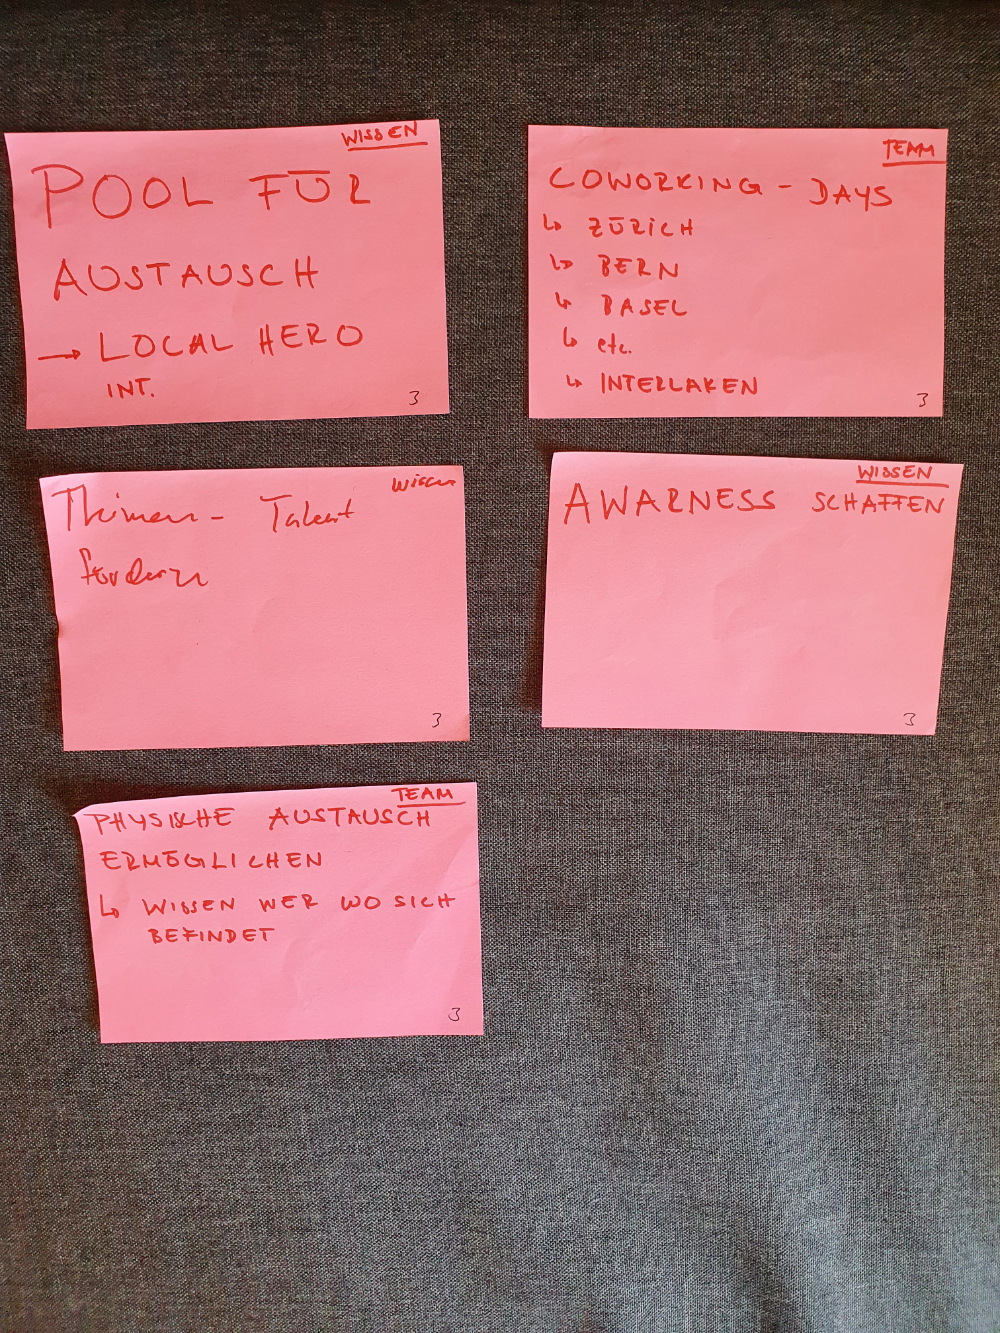 WISSEN
POOL FÜR
AUSTAUSCH
→ LOCAL HERO
INT.
3
TEAM
COWORKING - DAYS
↳ ZÜRICH
↳ BERN
↳ BASEL
↳ etc.
↳ INTERLAKEN
3
Wissen
Themen - Talent
fördern
3
WISSEN
AWARNESS SCHAFFEN
3
TEAM
PHYSISCHE AUSTAUSCH
ERMÖGLICHEN
↳ WISSEN WER WO SICH
BEFINDET
3